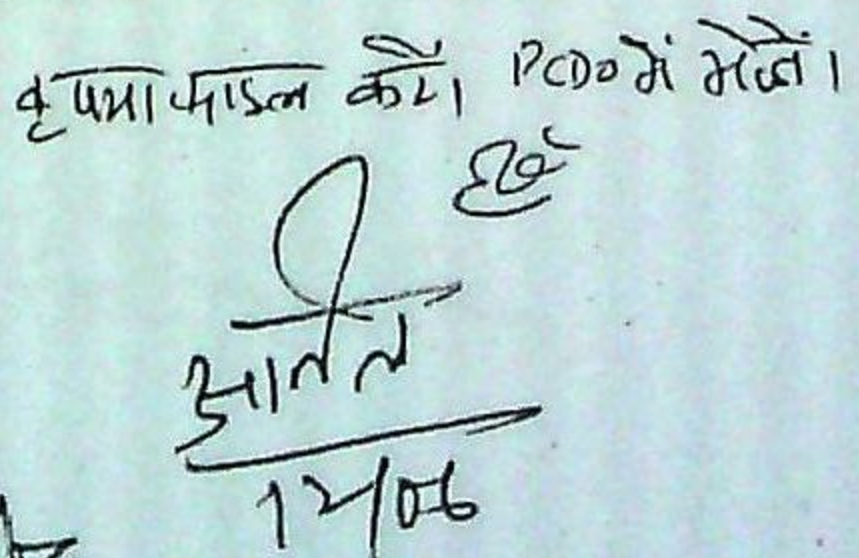 कृपया फाइल करें। PCDO में भेजें।
12/06